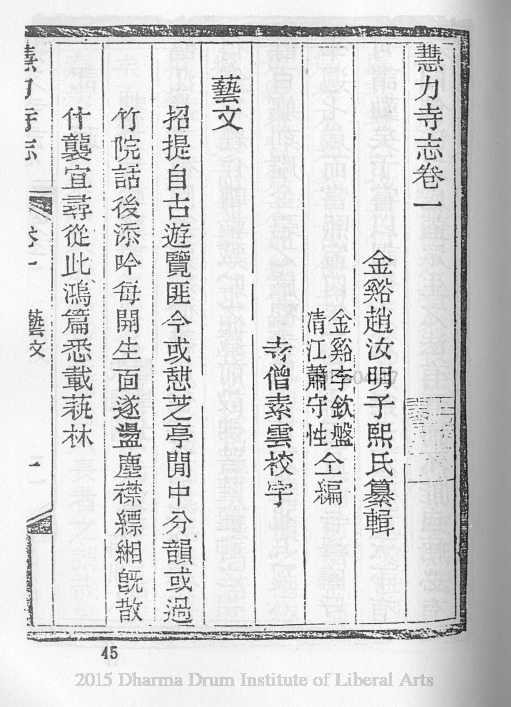 慧力寺志卷一
金谿趙汝明子熙氏纂輯
金谿李欽盤
清江蕭守性
仝編
寺僧素雲校字
藝文
招提自古遊覽匪今或憇芝亭閒中分韻或過
竹院話後添吟每開生面遂盪塵襟縹緗旣散
什襲宜尋從此鴻篇悉載蓺林
慧力寺志
卷一
藝文
一
45
2015 Dharma Drum Institute of Liberal Arts